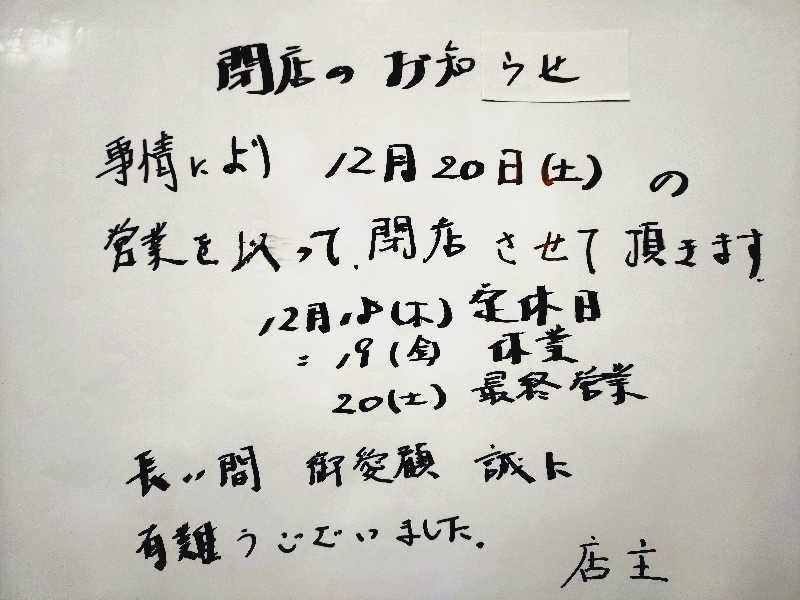 閉店のお知らせ
事情により 12月20日(土)の
営業を以って、閉店させて頂きます
12月18(木)定休日
〃19(金) 休業
20(土) 最終営業
長い間 御愛顧 誠に
有難うございました。
店主